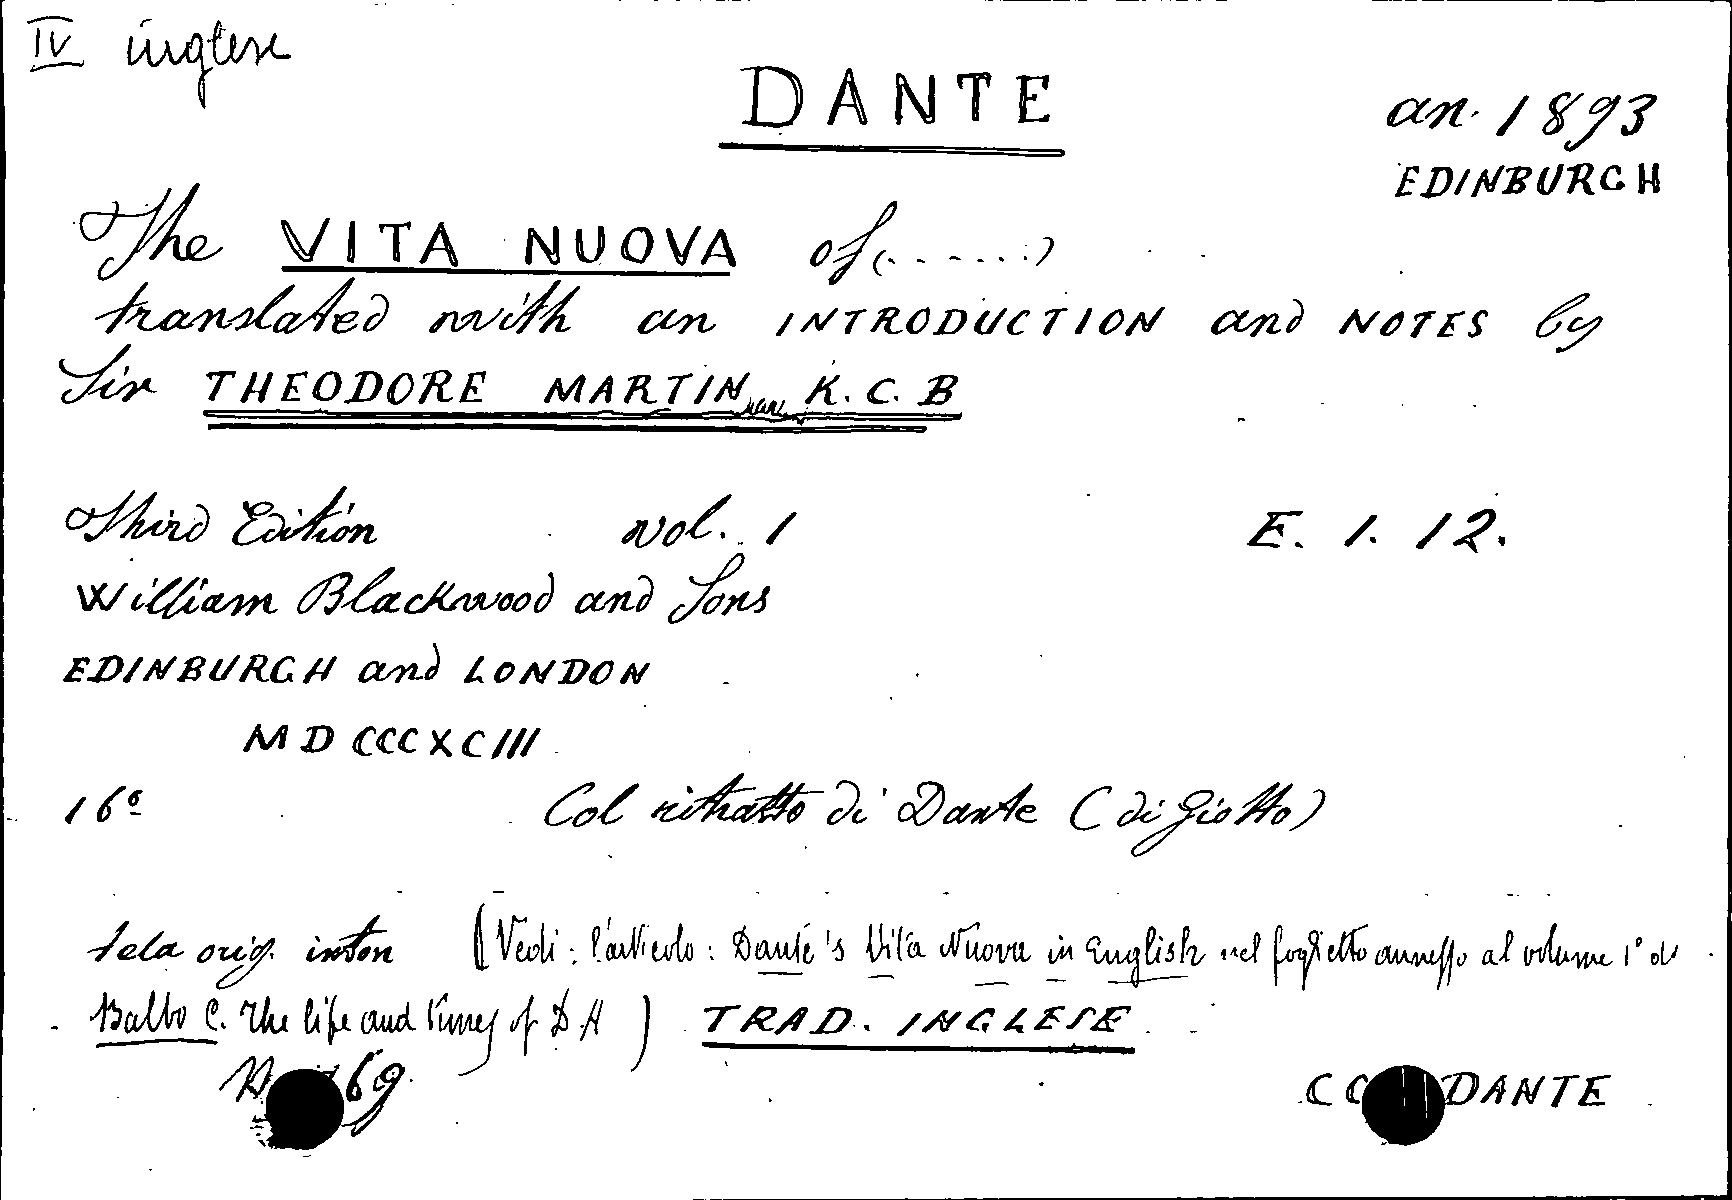 IV inglese
DANTE
an. 1893
EDINBURGH
The VITA NUOVA of (......)
translated with an INTRODUCTION and NOTES by
Sir THEODORE MARTIN K.C.B
Third Edition vol. 1 E. 1. 12.
William Blackwood and Sons
EDINBURGH and LONDON
MDCCCXCIII
16º Col ritratto di Dante (di Giotto)
tela orig. inton (Vedi: l'articolo: Dante's Vita Nuova in English nel foglietto annesso al volume 1º di
Balbo C. The life and times of D A) TRAD. INGLESE
69
DANTE